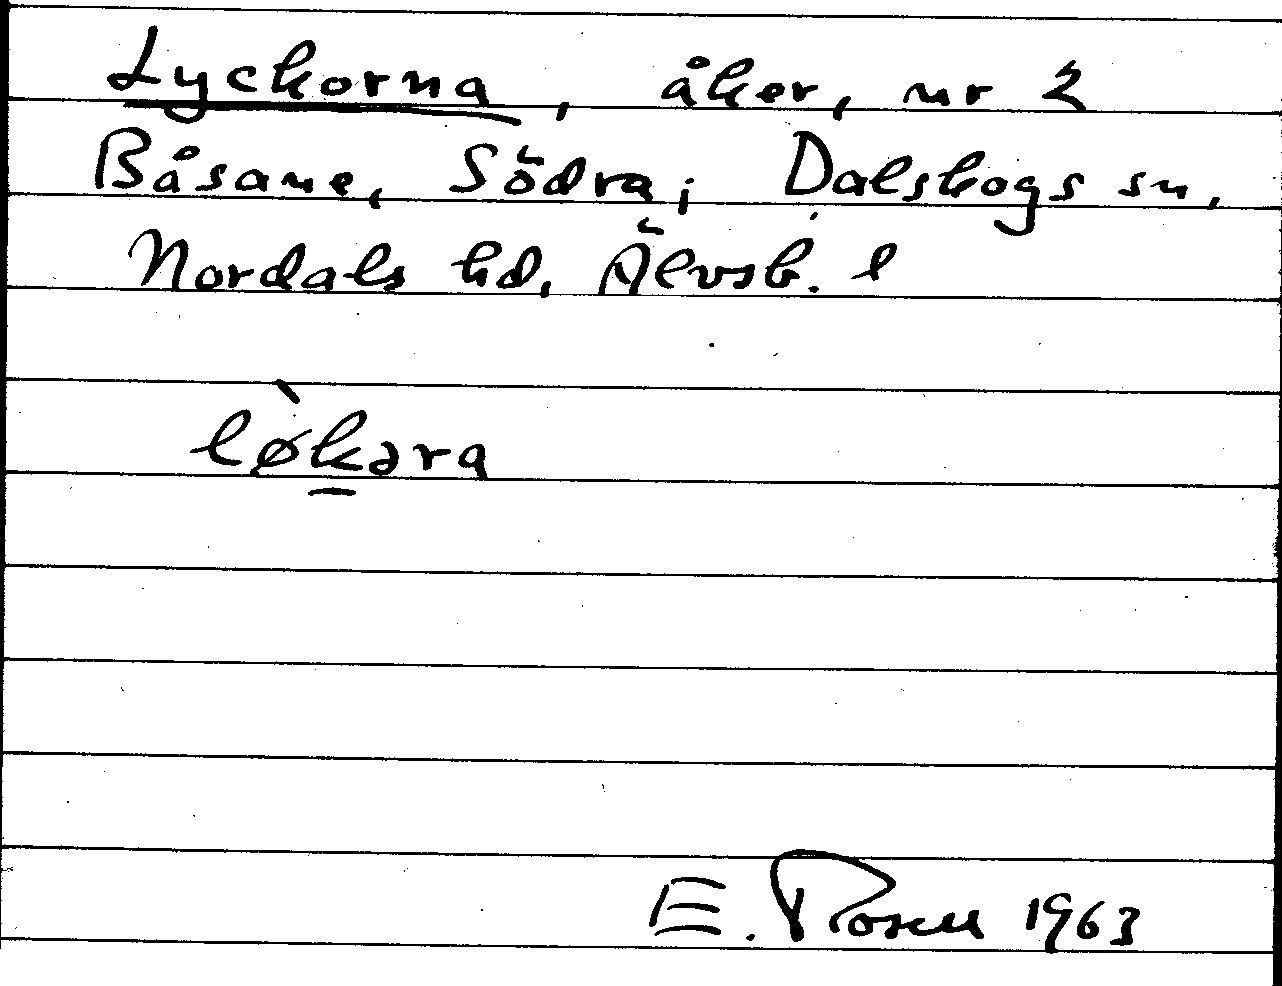 Lyckorna, åker, nr 2
Båsane, Södra; Dalskogs sn,
Nordals hd, Älvsb. l
lø̀k̲əra
E. Rosell 1963